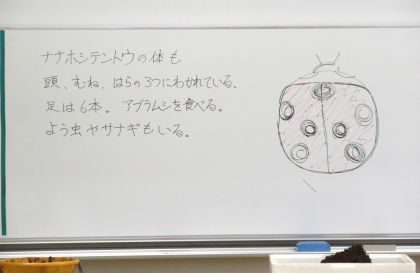 ナナホシテントウの体も
頭、むね、はらの3つにわかれている。
足は6本。アブラムシを食べる。
よう虫やサナギもいる。